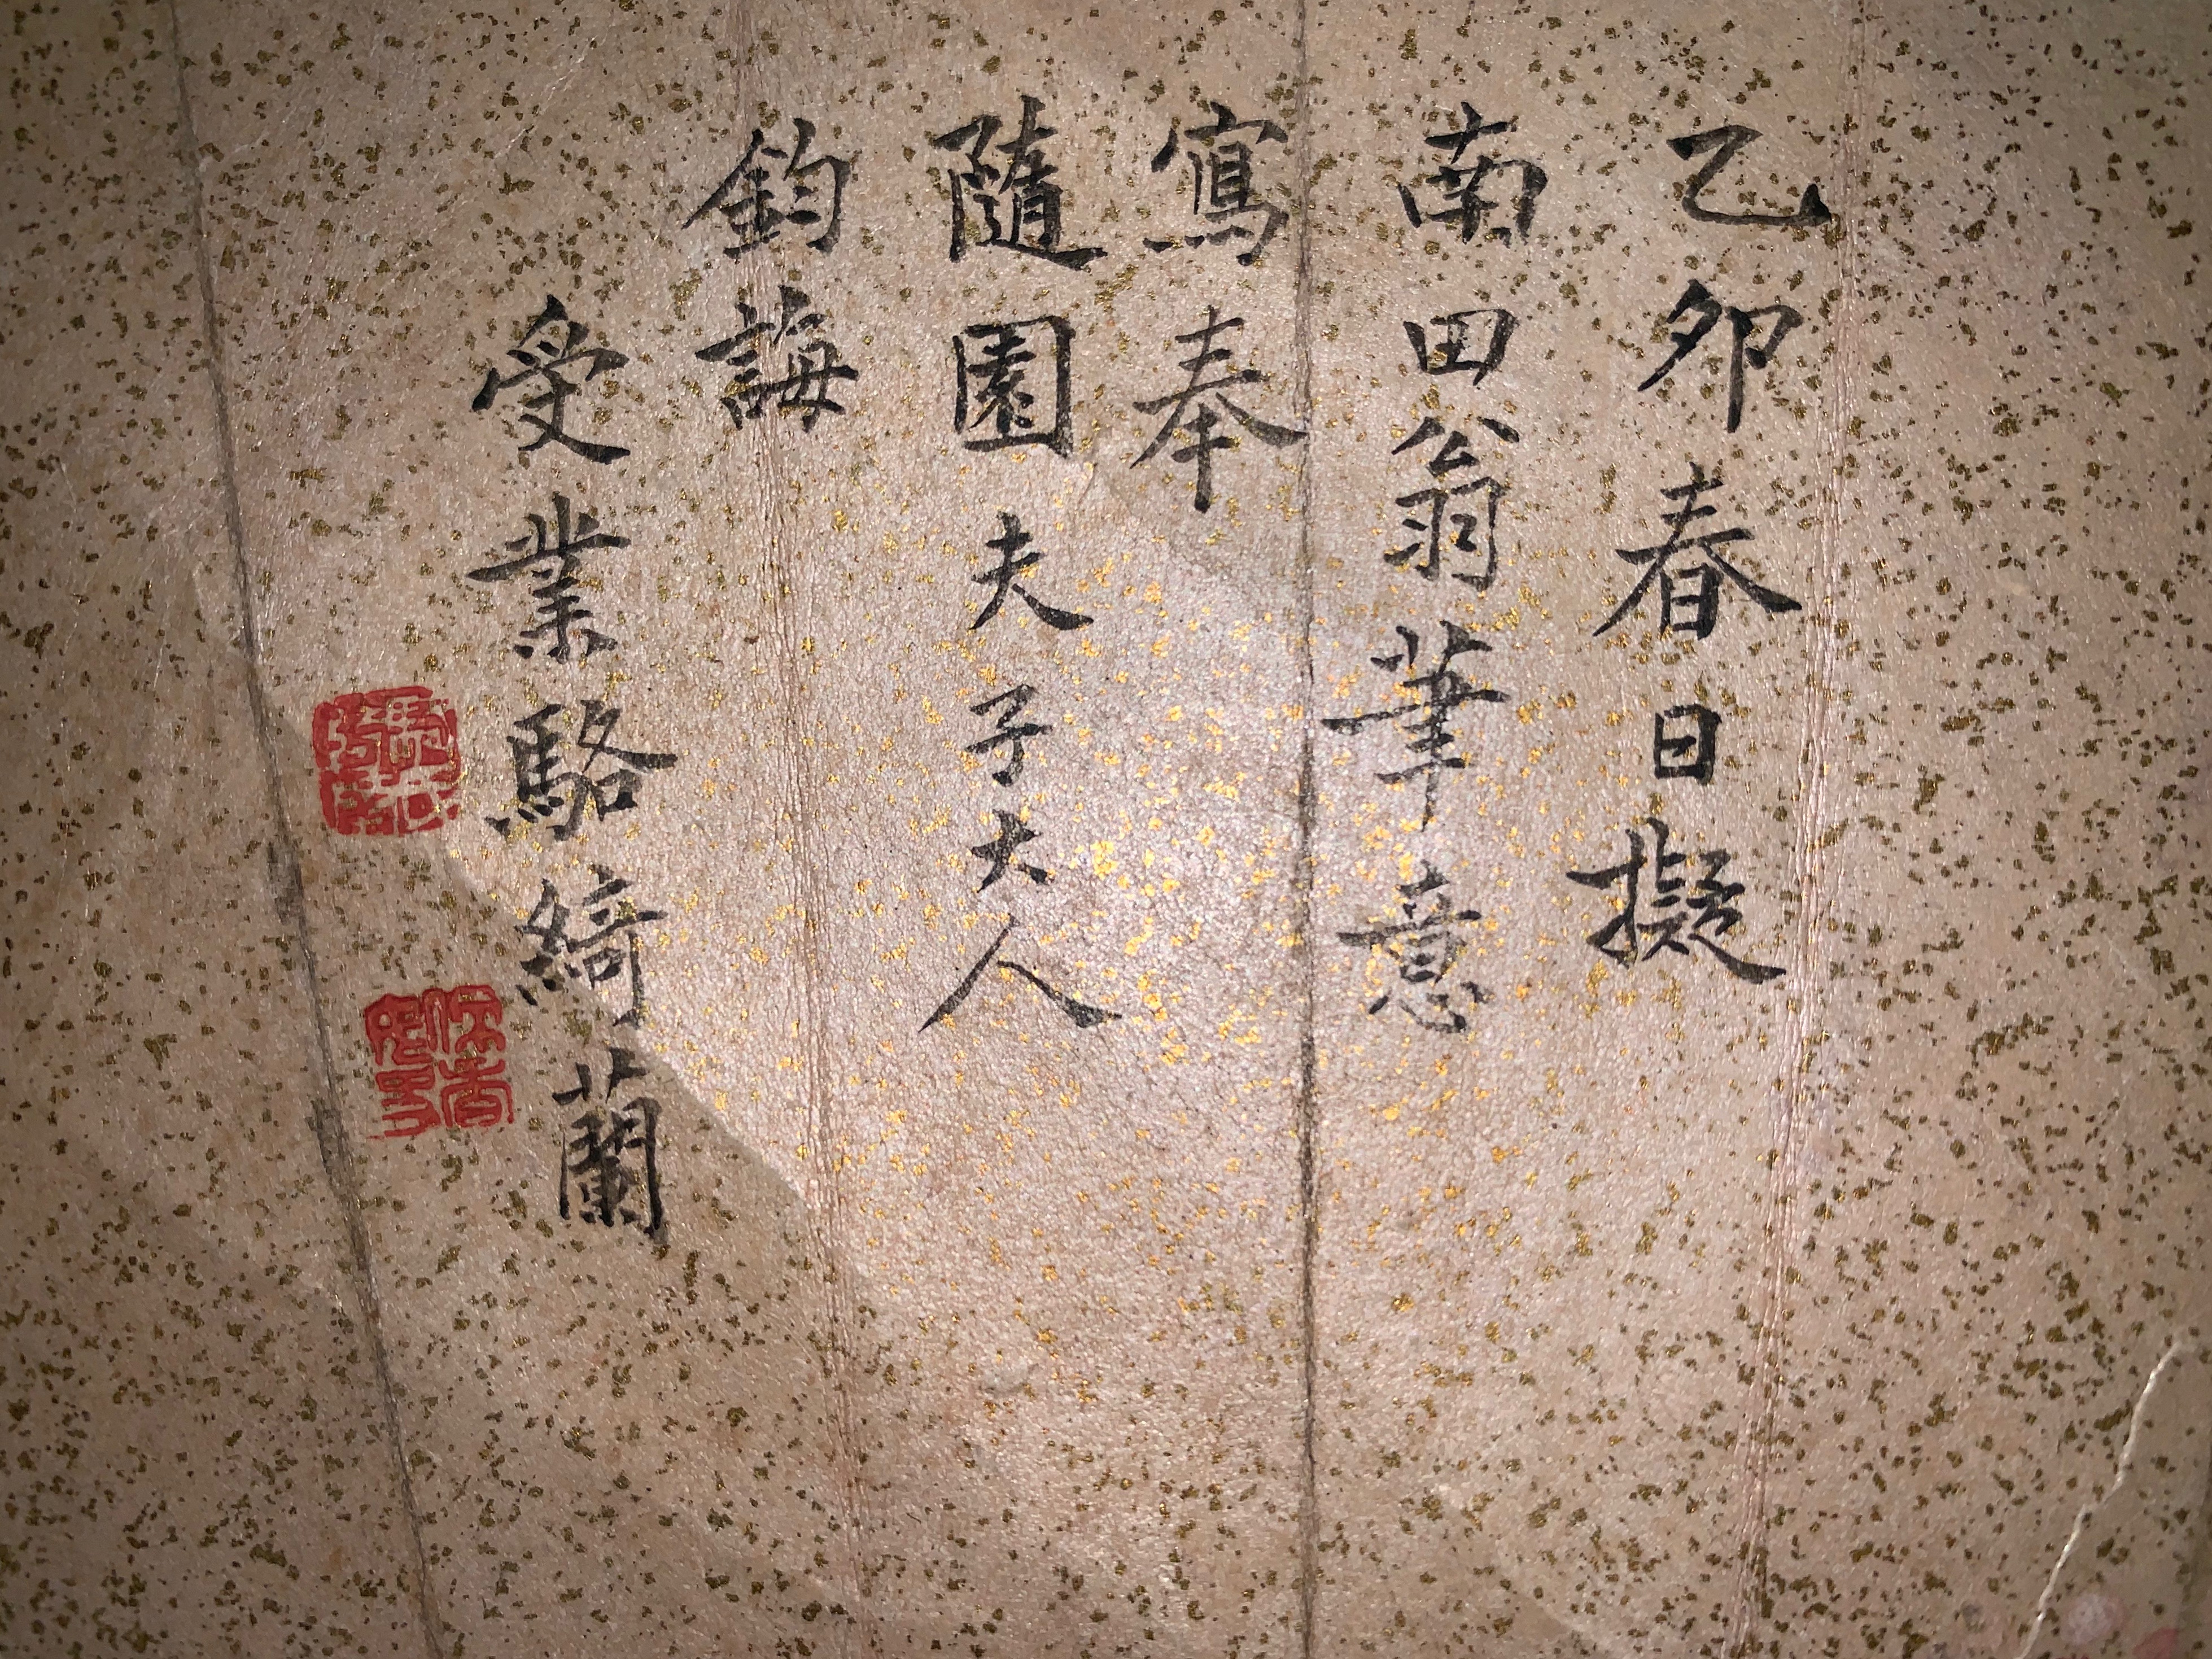 乙卯春日擬
南田翁筆意
寫奉
隨園夫子大人
鈞誨
受業駱綺蘭